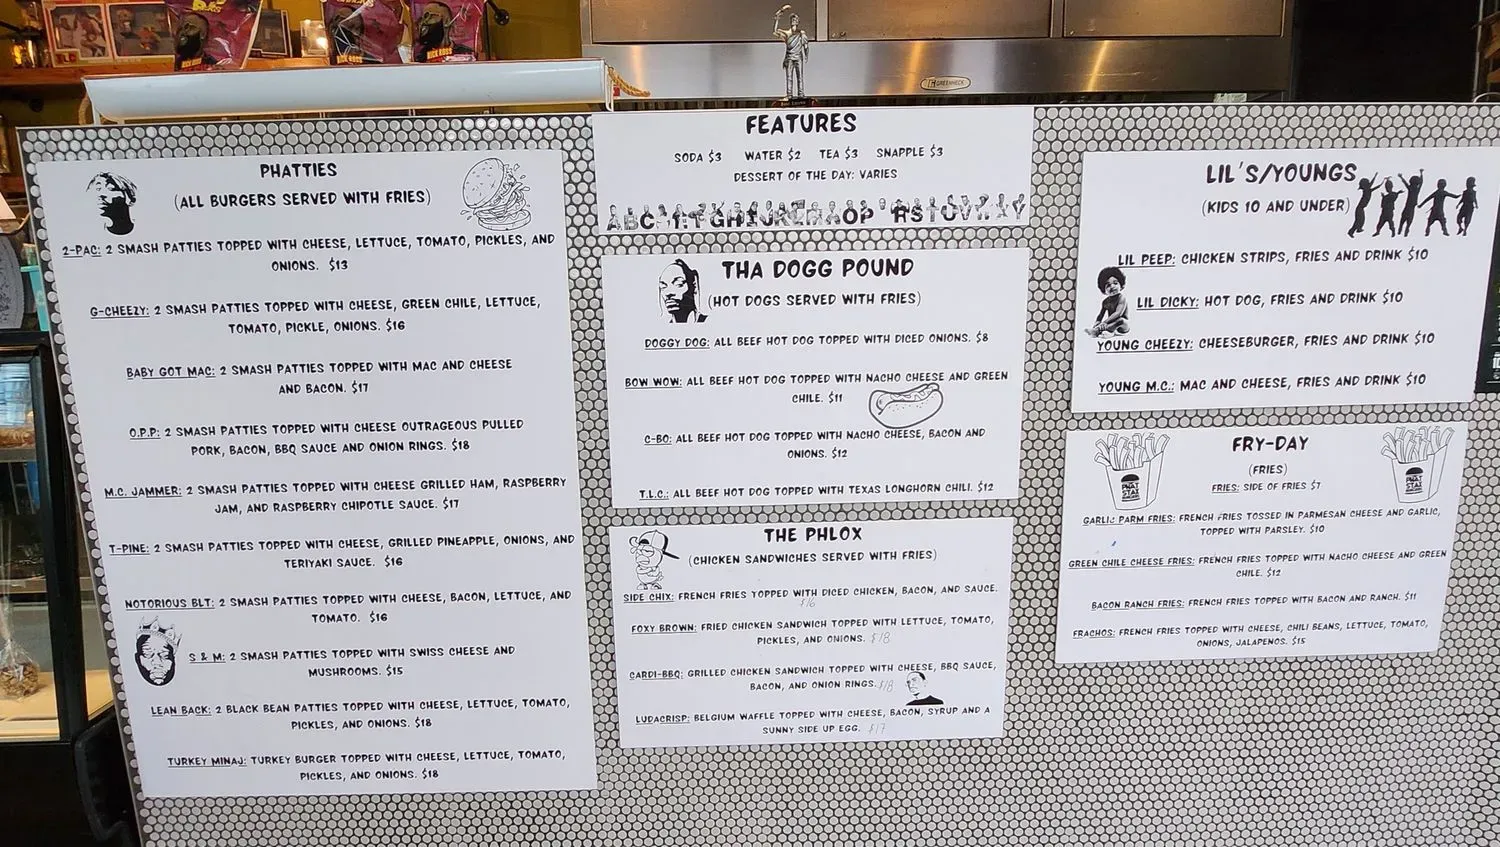 RICK ROSS
RICK ROSS
GREENHECK
PHATTIES
(ALL BURGERS SERVED WITH FRIES)
2-PAC: 2 SMASH PATTIES TOPPED WITH CHEESE, LETTUCE, TOMATO, PICKLES, AND
ONIONS. $13
G-CHEEZY: 2 SMASH PATTIES TOPPED WITH CHEESE, GREEN CHILE, LETTUCE,
TOMATO, PICKLE, ONIONS. $16
BABY GOT MAC: 2 SMASH PATTIES TOPPED WITH MAC AND CHEESE
AND BACON. $17
O.P.P: 2 SMASH PATTIES TOPPED WITH CHEESE OUTRAGEOUS PULLED
PORK, BACON, BBQ SAUCE AND ONION RINGS. $18
M.C. JAMMER: 2 SMASH PATTIES TOPPED WITH CHEESE GRILLED HAM, RASPBERRY
JAM, AND RASPBERRY CHIPOTLE SAUCE. $17
T-PINE: 2 SMASH PATTIES TOPPED WITH CHEESE, GRILLED PINEAPPLE, ONIONS, AND
TERIYAKI SAUCE. $16
NOTORIOUS BLT: 2 SMASH PATTIES TOPPED WITH CHEESE, BACON, LETTUCE, AND
TOMATO. $16
S & M: 2 SMASH PATTIES TOPPED WITH SWISS CHEESE AND
MUSHROOMS. $15
LEAN BACK: 2 BLACK BEAN PATTIES TOPPED WITH CHEESE, LETTUCE, TOMATO,
PICKLES, AND ONIONS. $18
TURKEY MINAJ: TURKEY BURGER TOPPED WITH CHEESE, LETTUCE, TOMATO,
PICKLES, AND ONIONS. $18
FEATURES
SODA $3 WATER $2 TEA $3 SNAPPLE $3
DESSERT OF THE DAY: VARIES
THA DOGG POUND
(HOT DOGS SERVED WITH FRIES)
DOGGY DOG: ALL BEEF HOT DOG TOPPED WITH DICED ONIONS. $8
BOW WOW: ALL BEEF HOT DOG TOPPED WITH NACHO CHEESE AND GREEN
CHILE. $11
C-BO: ALL BEEF HOT DOG TOPPED WITH NACHO CHEESE, BACON AND
ONIONS. $12
T.L.C.: ALL BEEF HOT DOG TOPPED WITH TEXAS LONGHORN CHILI. $12
THE PHLOX
(CHICKEN SANDWICHES SERVED WITH FRIES)
SIDE CHIX: FRENCH FRIES TOPPED WITH DICED CHICKEN, BACON, AND SAUCE.
$16
FOXY BROWN: FRIED CHICKEN SANDWICH TOPPED WITH LETTUCE, TOMATO,
PICKLES, AND ONIONS. $18
CARDI-BBQ: GRILLED CHICKEN SANDWICH TOPPED WITH CHEESE, BBQ SAUCE,
BACON, AND ONION RINGS. $18
LUDACRISP: BELGIUM WAFFLE TOPPED WITH CHEESE, BACON, SYRUP AND A
SUNNY SIDE UP EGG. $17
LIL'S/YOUNGS
(KIDS 10 AND UNDER)
LIL PEEP: CHICKEN STRIPS, FRIES AND DRINK $10
LIL DICKY: HOT DOG, FRIES AND DRINK $10
YOUNG CHEZY: CHEESEBURGER, FRIES AND DRINK $10
YOUNG M.C.: MAC AND CHEESE, FRIES AND DRINK $10
FRY-DAY
(FRIES)
FRIES: SIDE OF FRIES $7
GARLIC PARM FRIES: FRENCH FRIES TOSSED IN PARMESAN CHEESE AND GARLIC,
TOPPED WITH PARSLEY. $10
GREEN CHILE CHEESE FRIES: FRENCH FRIES TOPPED WITH NACHO CHEESE AND GREEN
CHILE. $12
BACON RANCH FRIES: FRENCH FRIES TOPPED WITH BACON AND RANCH. $11
FRACHOS: FRENCH FRIES TOPPED WITH CHEESE, CHILI BEANS, LETTUCE, TOMATO,
ONIONS, JALAPENOS. $15